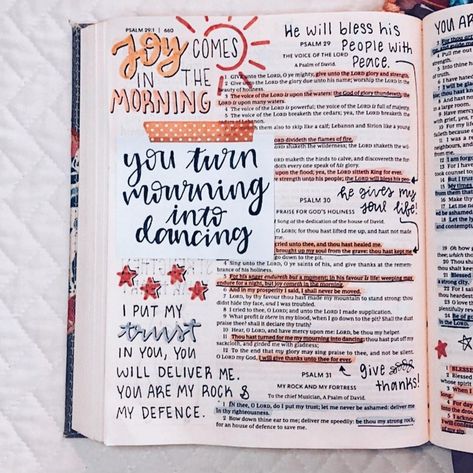 PSALM 29:1 | 660
JOY COMES
IN THE
MORNING
you turn
mourning
into
dancing
I PUT MY
trust
IN YOU, YOU
WILL DELIVER ME.
YOU ARE MY ROCK &
MY DEFENCE.
He will bless his
people with
peace.
PSALM 29
THE VOICE OF THE LORD
A Psalm of David.
1 GIVE unto the LORD, O ye mighty, give unto the LORD glory and strength.
2 Give unto the LORD the glory due unto his name; worship the LORD
beauty of holiness.
3 The voice of the LORD is upon the waters: the God of glory thundereth: the
LORD is upon many waters.
4 The voice of the LORD is powerful; the voice of the LORD is full of majesty.
5 The voice of the LORD breaketh the cedars; yea, the LORD breaketh the
cedars of Lebanon.
them also to skip like a calf; Lebanon and Sirion like a young
LORD divideth the flames of fire.
LORD shaketh the wilderness; the LORD shaketh the wilderness
maketh the hinds to calve, and discovereth the
doth every one speak of his glory.
upon the flood; yea, the LORD sitteth King for ever.
strength unto his people; the LORD will bless his
he gives my
soul life!
PSALM 30
PRAISE FOR GOD'S HOLINESS
at the dedication of the house of David.
LORD; for thou hast lifted me up, and hast not made
cried unto thee, and thou hast healed me.
brought up my soul from the grave: thou hast kept me
go down to the pit.
4 Sing unto the LORD, O ye saints of his, and give thanks at the
brance of his holiness.
5 For his anger endureth but a moment; in his favour is life: weeping may
endure for a night, but joy cometh in the morning.
6 And in my prosperity I said, I shall never be moved.
7 LORD, by thy favour thou hast made my mountain to stand strong: thou
didst hide thy face, and I was troubled.
8 I cried to thee, O LORD; and unto the LORD I made supplication.
9 What profit is there in my blood, when I go down to the pit? Shall the dust
praise thee? shall it declare thy truth?
10 Hear, O LORD, and have mercy upon me: LORD, be thou my helper.
11 Thou hast turned for me my mourning into dancing: thou hast put off my
sackcloth, and girded me with gladness;
12 To the end that my glory may sing praise to thee, and not be silent.
O LORD my God, I will give thanks unto thee for ever.
give
thanks!
PSALM 31
MY ROCK AND MY FORTRESS
To the chief Musician, A Psalm of David.
1 IN thee, O LORD, do I put my trust; let me never be ashamed: deliver me
in thy righteousness.
2 Bow down thine ear to me; deliver me speedily: be thou my strong rock,
for an house of defence to save me.
YOU ARE